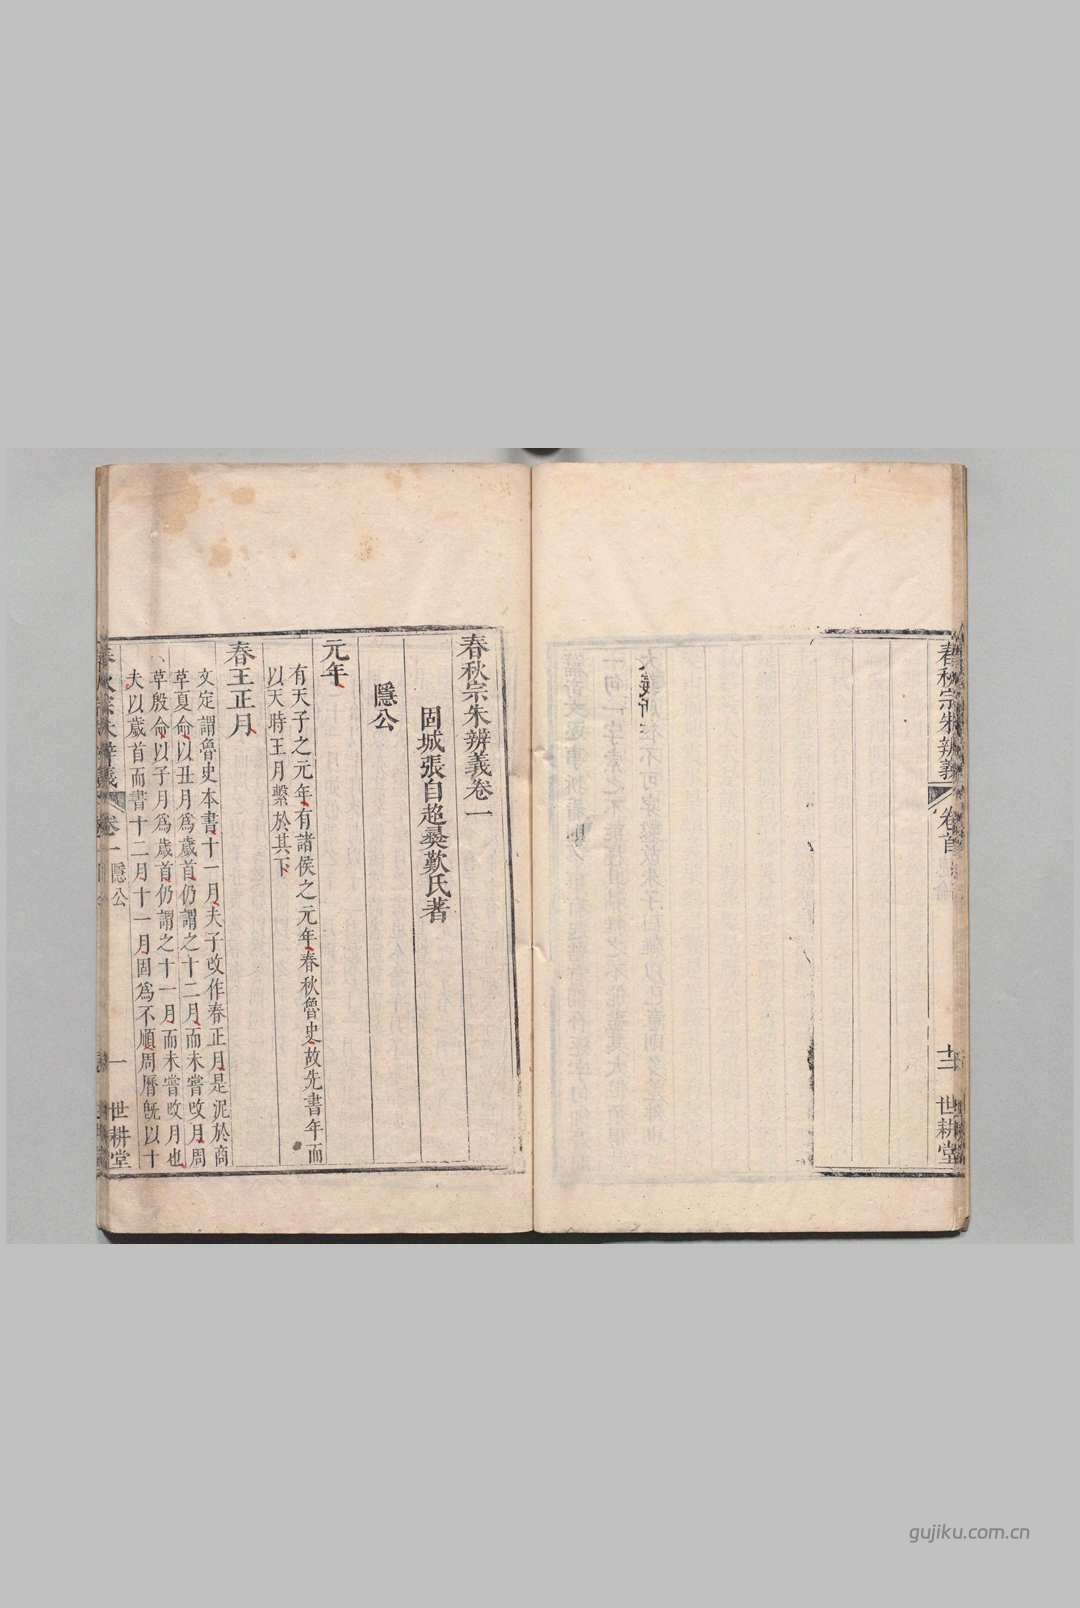 春秋宗朱辨義
卷首
十二
世耕堂
大義所
春秋宗朱辨義卷一
固城張自超彝歎氏著
隱公
元年
有天子之元年有諸侯之元年春秋魯史故先書年而
以天時王月繫於其下
春王正月
文定謂魯史本書十一月夫子改作春正月是泥於商
草夏命以丑月爲歲首仍謂之十二月而未嘗改月周
草殷命以子月爲歲首仍謂之十一月而未嘗改月也
夫以歲首而書十二月十一月固爲不順周曆旣以十
春秋宗朱辨義
卷一
隱公
一
世耕堂
gujiku.com.cn